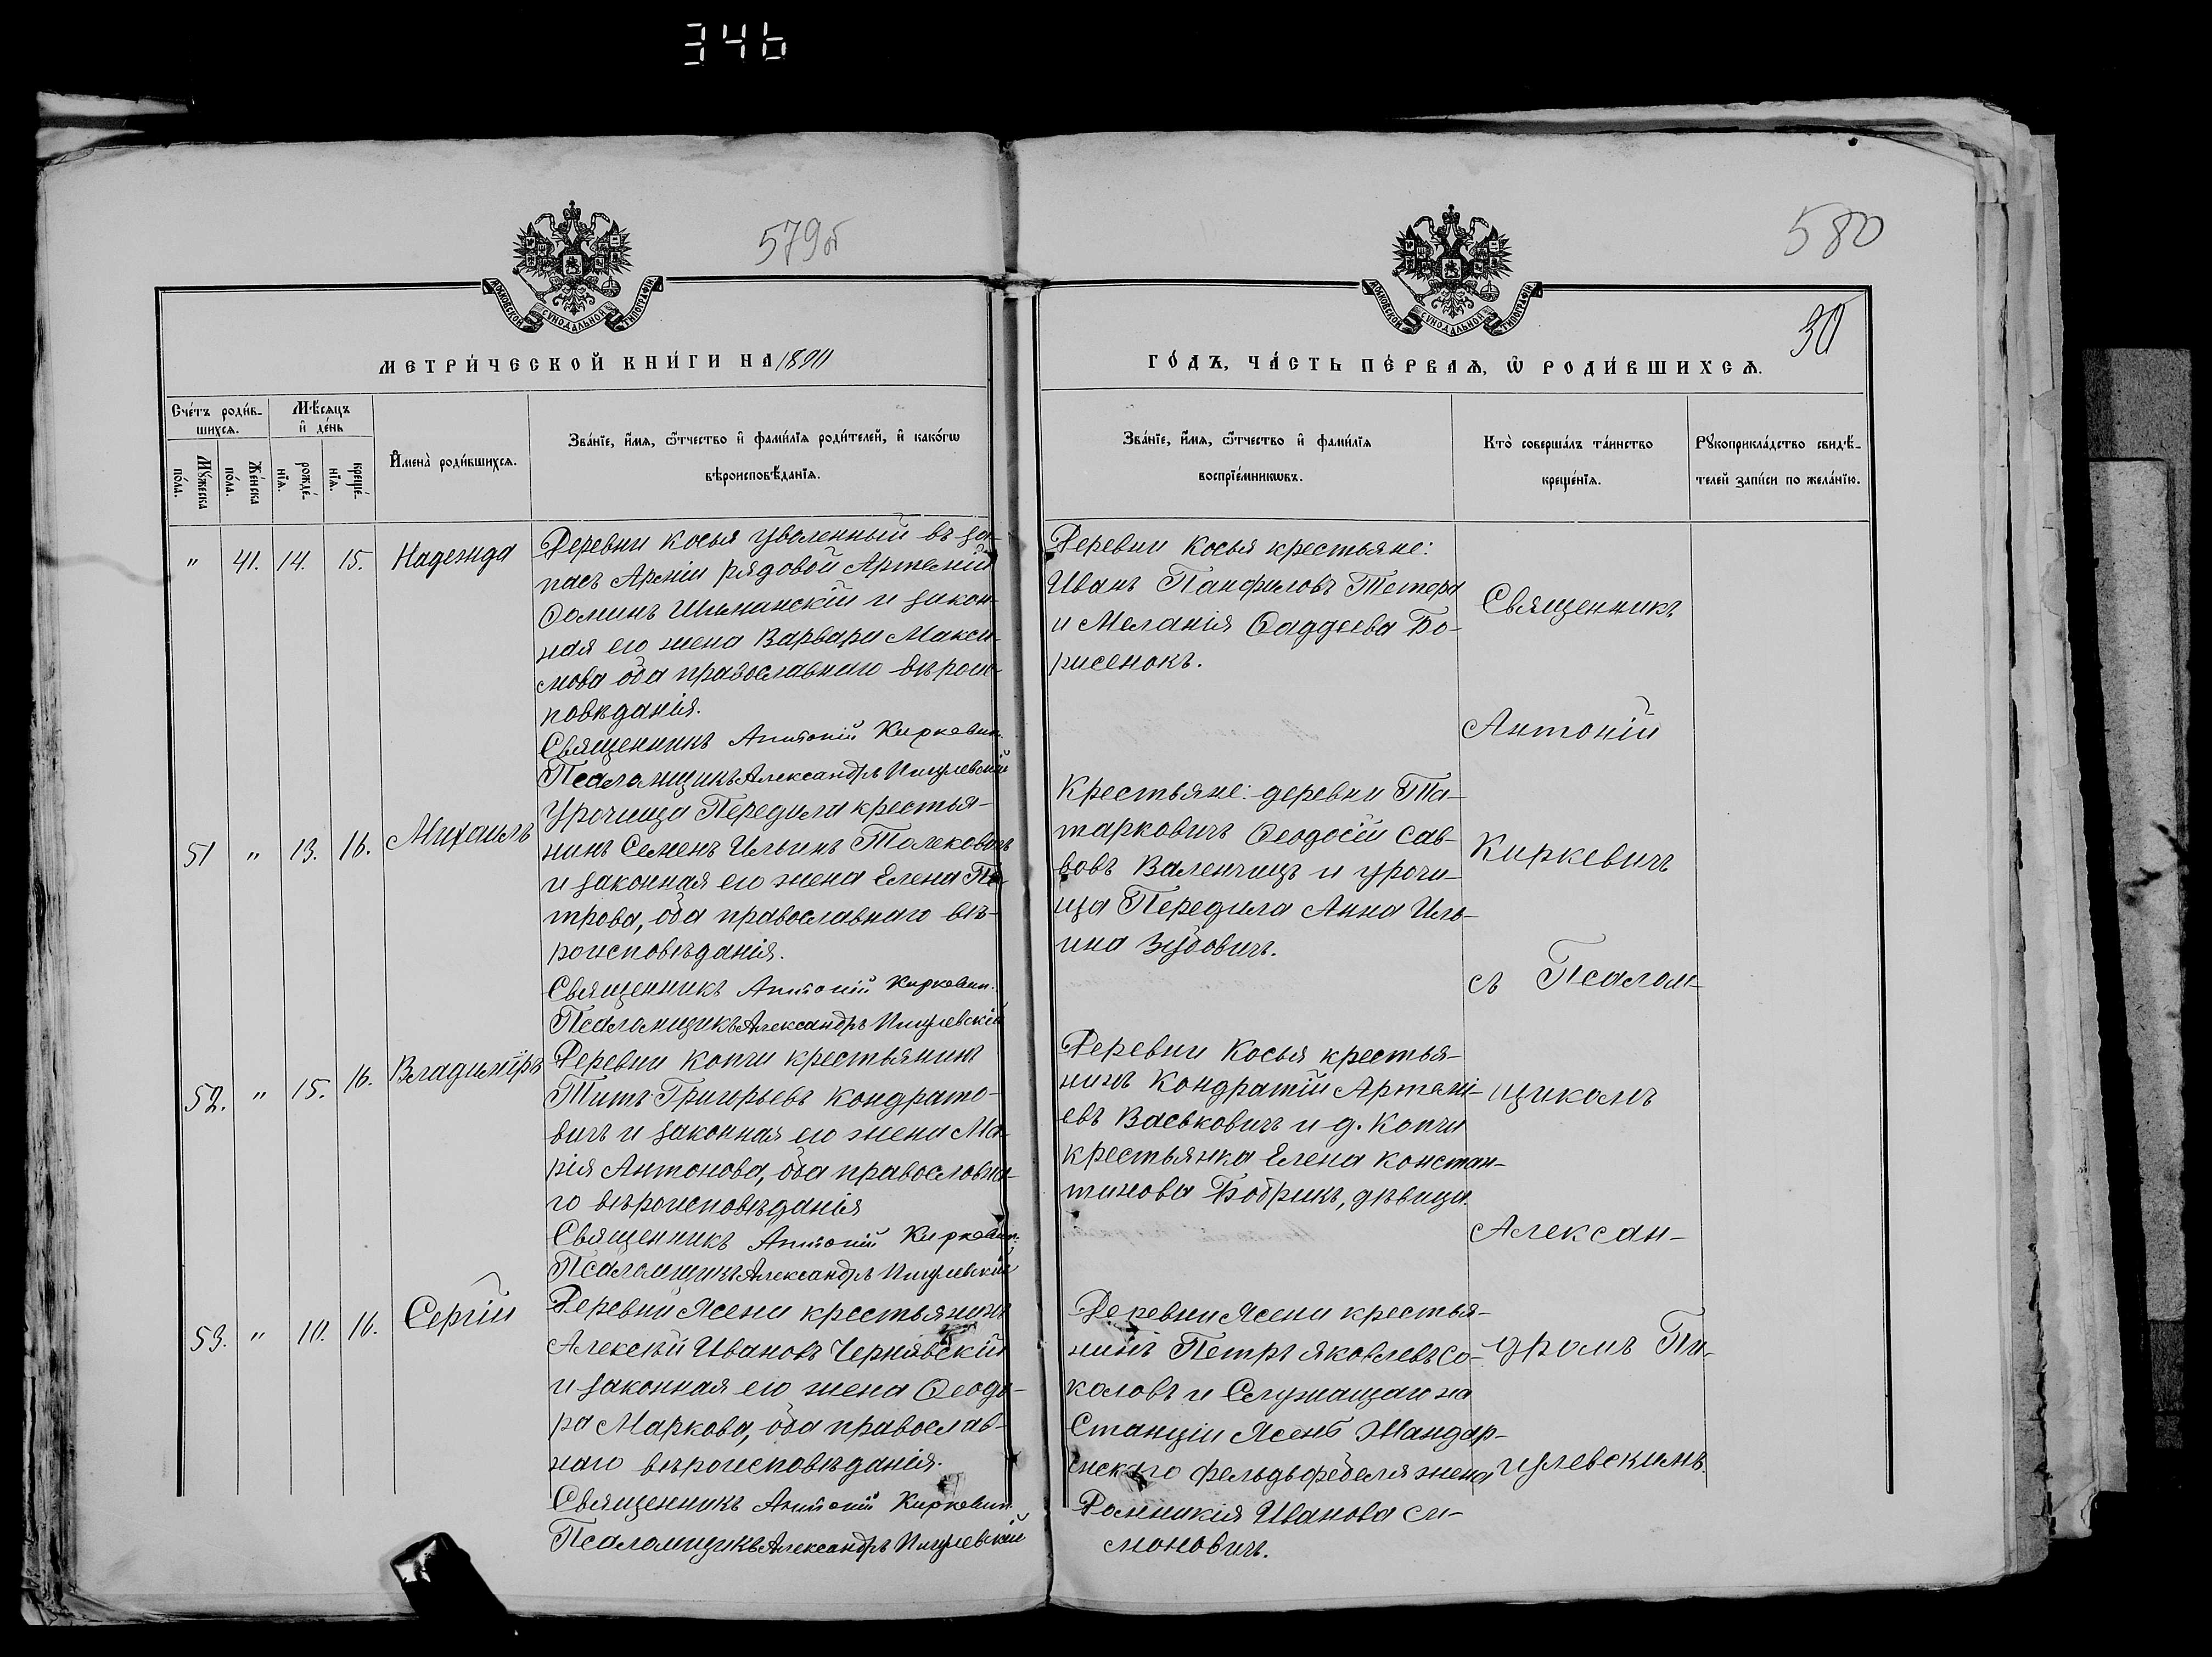 346
579об
580
30
МОСКОВСКОЙ СѴНОДАЛЬНОЙ ТИПОГРАФІИ
МОСКОВСКОЙ СѴНОДАЛЬНОЙ ТИПОГРАФІИ
МЕТРИ́ЧЕСКОЙ КНИ́ГИ НА 1890
ГО́ДЪ, ЧА́СТЬ ПЕ́РВАѦ, Ѽ РОДИ́ВШИХСѦ.
Сче́тъ роди́в-
шихсѧ.
Мѣ́сѧцъ
и҆ де́нь
Мꙋ́жеска
по́ла.
Же́нска
по́ла.
рожде́-
нїѧ.
креще́-
нїѧ.
И҆мена̀ роди́вшихсѧ.
Зва́нїе, и҆́мѧ, ѻ҆́тчество и҆ фами́лїѧ роди́телей, и҆ како́гѡ
вѣроисповѣ́данїѧ.
Зва́нїе, и҆́мѧ, ѻ҆́тчество и҆ фами́лїѧ
воспрїе́мникѡвъ.
Кто̀ соверша́лъ та́инство
креще́нїѧ.
Рꙋкоприкла́дство свидѣ́-
телей за́писи по жела́нїю.
" 41. 14. 15. Надежда
Деревни Косья уволенный въ за-
пасъ Арміи рядовой Артемій
Ѳоминъ и закон-
ная его жена Варвара Макси-
мова оба православнаго вѣроис-
повѣданія.
Священникъ Антоній Киркевич.
Псаломщикъ Александръ Пигулевскій
Деревни Косья крестьяне:
Иванъ Панфиловъ Тетера
и Меланія Ѳаддеева Бо-
рисенокъ.
51 " 13. 16. Михаилъ
Урочища Передила крестья-
нинъ Семенъ Ильинъ Толековичъ
и законная его жена Елена Пе-
трова, оба православнаго вѣ-
роисповѣданія.
Священникъ Антоній Киркевич.
Псаломщикъ Александръ Пигулевскій
Крестьяне: деревни Та-
тарковичъ Ѳеодосій Сав-
вовъ Валенчицъ и урочи-
ща Передила Анна Иль-
ина Зубовичъ.
52. " 15. 16. Владиміръ
Деревни Копчи крестьянинъ
Титъ Григорьевъ Кондрато-
вичъ и законная его жена Ма-
рія Антонова, оба православна-
го вѣроисповѣданія
Священникъ Антоній Киркевич.
Псаломщикъ Александръ Пигулевскій
Деревни Косья крестья-
нинъ Кондратій Артемі-
евъ Васьковичъ и д. Копчи
крестьянка Елена Констан-
тинова Бобрикъ, дѣвица.
53. " 10. 16. Сергій
Деревни Ясени крестьянинъ
Алексѣй Ивановъ Чернявскій
и законная его жена Ѳеодо-
ра Маркова, оба православ-
наго вѣроисповѣданія.
Священникъ Антоній Киркевич.
Псаломщикъ Александръ Пигулевскій
Деревни Ясени крестья-
нинъ Петръ Яковлевъ Со-
коловъ и Служащаго на
Станціи Ясень Жандар-
мскаго фельдфебеля жена
Домникія Иванова Си-
моновичъ.
Священникъ
Антоній
Киркевичъ
съ Псалом-
щикомъ
Алексан-
дромъ Пи-
гулевскимъ.